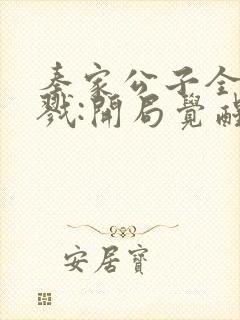 秦家公子全
戮:開局覺醒
安居寶